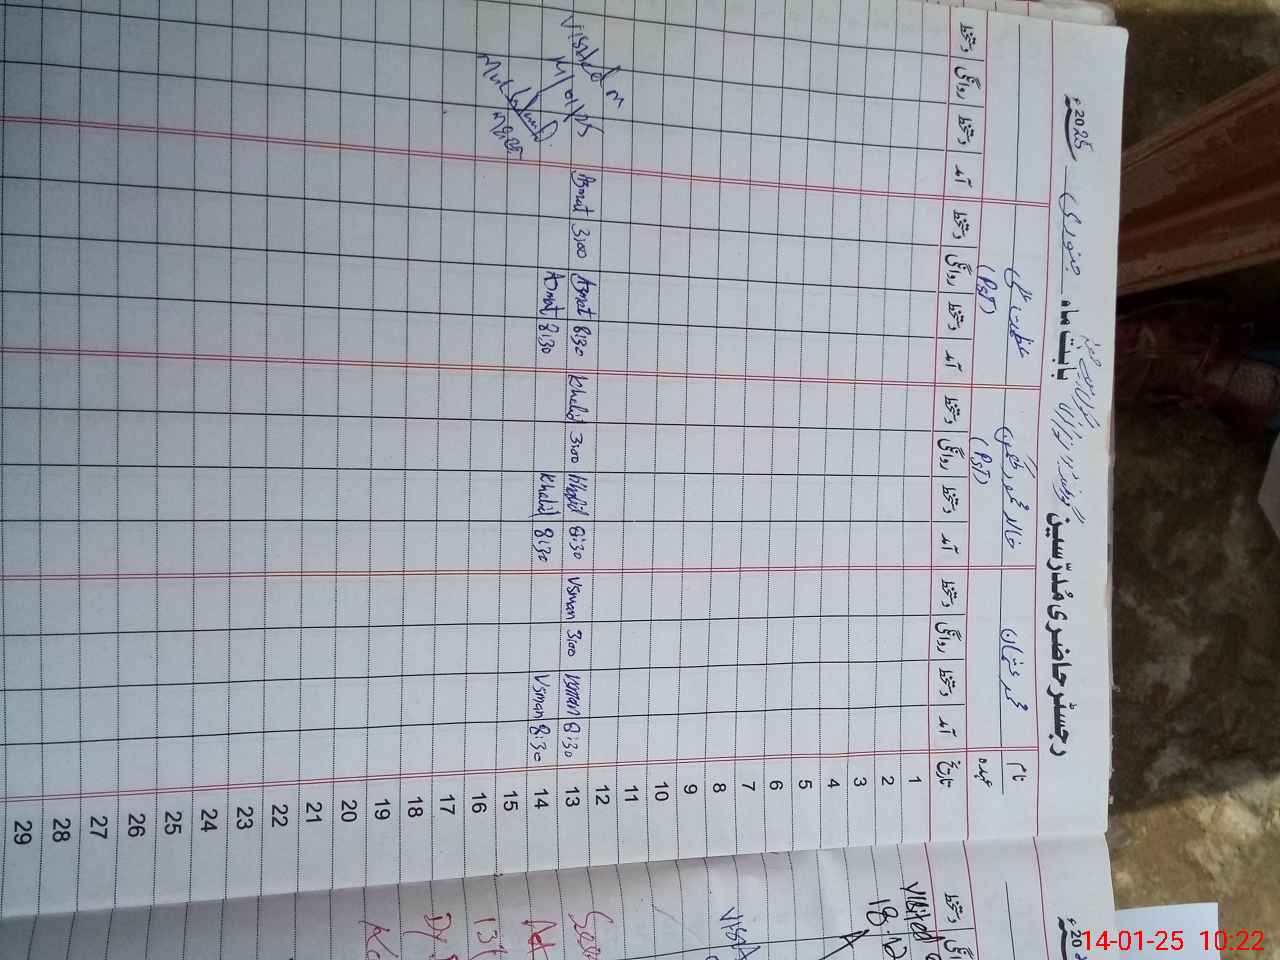 رجسٹر حاضری مُدرّسین بابت ماہ جنوری 2025ء
نام محمد عثمان خالد محمود عظمت علی
عہدہ (PST) (PST)
تاریخ آمد دستخط روانگی دستخط آمد دستخط روانگی دستخط آمد دستخط روانگی دستخط آمد دستخط روانگی دستخط
1
2
3
4
5
6
7
8
9
10
11
12
13 8:30 Usman 3:00 Usman 8:30 Khalid 3:00 Khalid 8:30 Azmat 3:00 Azmat
14 8:30 Usman 8:30 Khalid 8:30 Azmat
15
16
17
18
19
20
21
22
23
24
25
26
27
28
29
Visited on
14/01/25
دستخط
روانگی
Visited
18.12
14-01-25 10:22